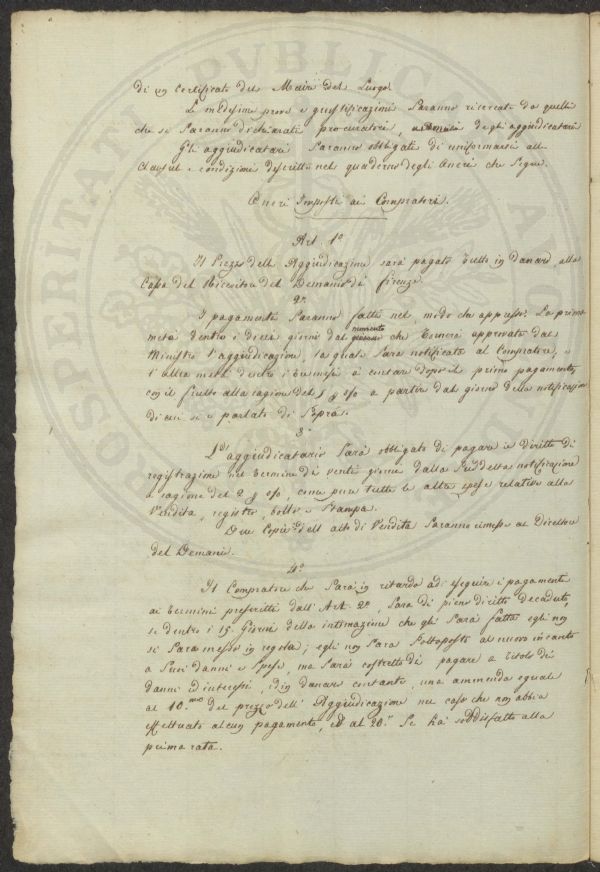 di un Certificato del Maire del Luogo
Le medesime prove e giustificazioni Saranno ricercate da quelli
che si Saranno dichiarati procuratori, degli aggiudicatari
Gli aggiudicatari Saranno obbligati di uniformarsi alle
Clausule e condizioni descritte nel quaderno degli Oneri che Segue.
Oneri Imposti ai Compratori.
Art. 1º
Il Prezzo dell'Aggiudicazione sarà pagato tutto in danaro alla
Cassa del Ricevitore del Demanio di Firenze.
2º
I pagamenti Saranno fatti nel modo che appresso: La prima
metà dentro i dieci giorni dal momento che verrà approvata dal
Ministro l'aggiudicazione, la quale Sarà notificata al Compratore, e
l'altra metà dentro i tre mesi a contare dopo il primo pagamento
con il frutto alla ragione del 5 p o/o a partire dal giorno della notificazione
di cui si è parlato di Sopra.
3º
L'aggiudicatario Sarà obbligato di pagare i diritti di
registrazione nel termine di venti giorni dalla Suddetta notificazione
a ragione del 2 p o/o, come pure tutte le altre spese relative alla
Vendita, registro, bollo e Stampa.
Due Copie dell'atto di Vendita Saranno rimesse al Direttore
del Demanio.
4º
Il Compratore che Sarà in ritardo ad eseguire i pagamenti
ai termini prescritti dall'Art. 2º, Sarà di pieno diritto decaduto,
se dentro i 15 Giorni della intimazione che gli Sarà fatta egli non
si Sarà messo in regola; egli non Sarà Sottoposto al nuovo incanto
a Suoi danni e Spese, ma Sarà costretto di pagare a titolo di
danni ed interessi, ed in danaro contante, una ammenda eguale
al 10.mo del prezzo dell'Aggiudicazione nel caso che non abbia
effettuato alcun pagamento, ed al 20.º Se ha soddisfatto alla
prima rata.
PUBLICAE
PROSPERITATI